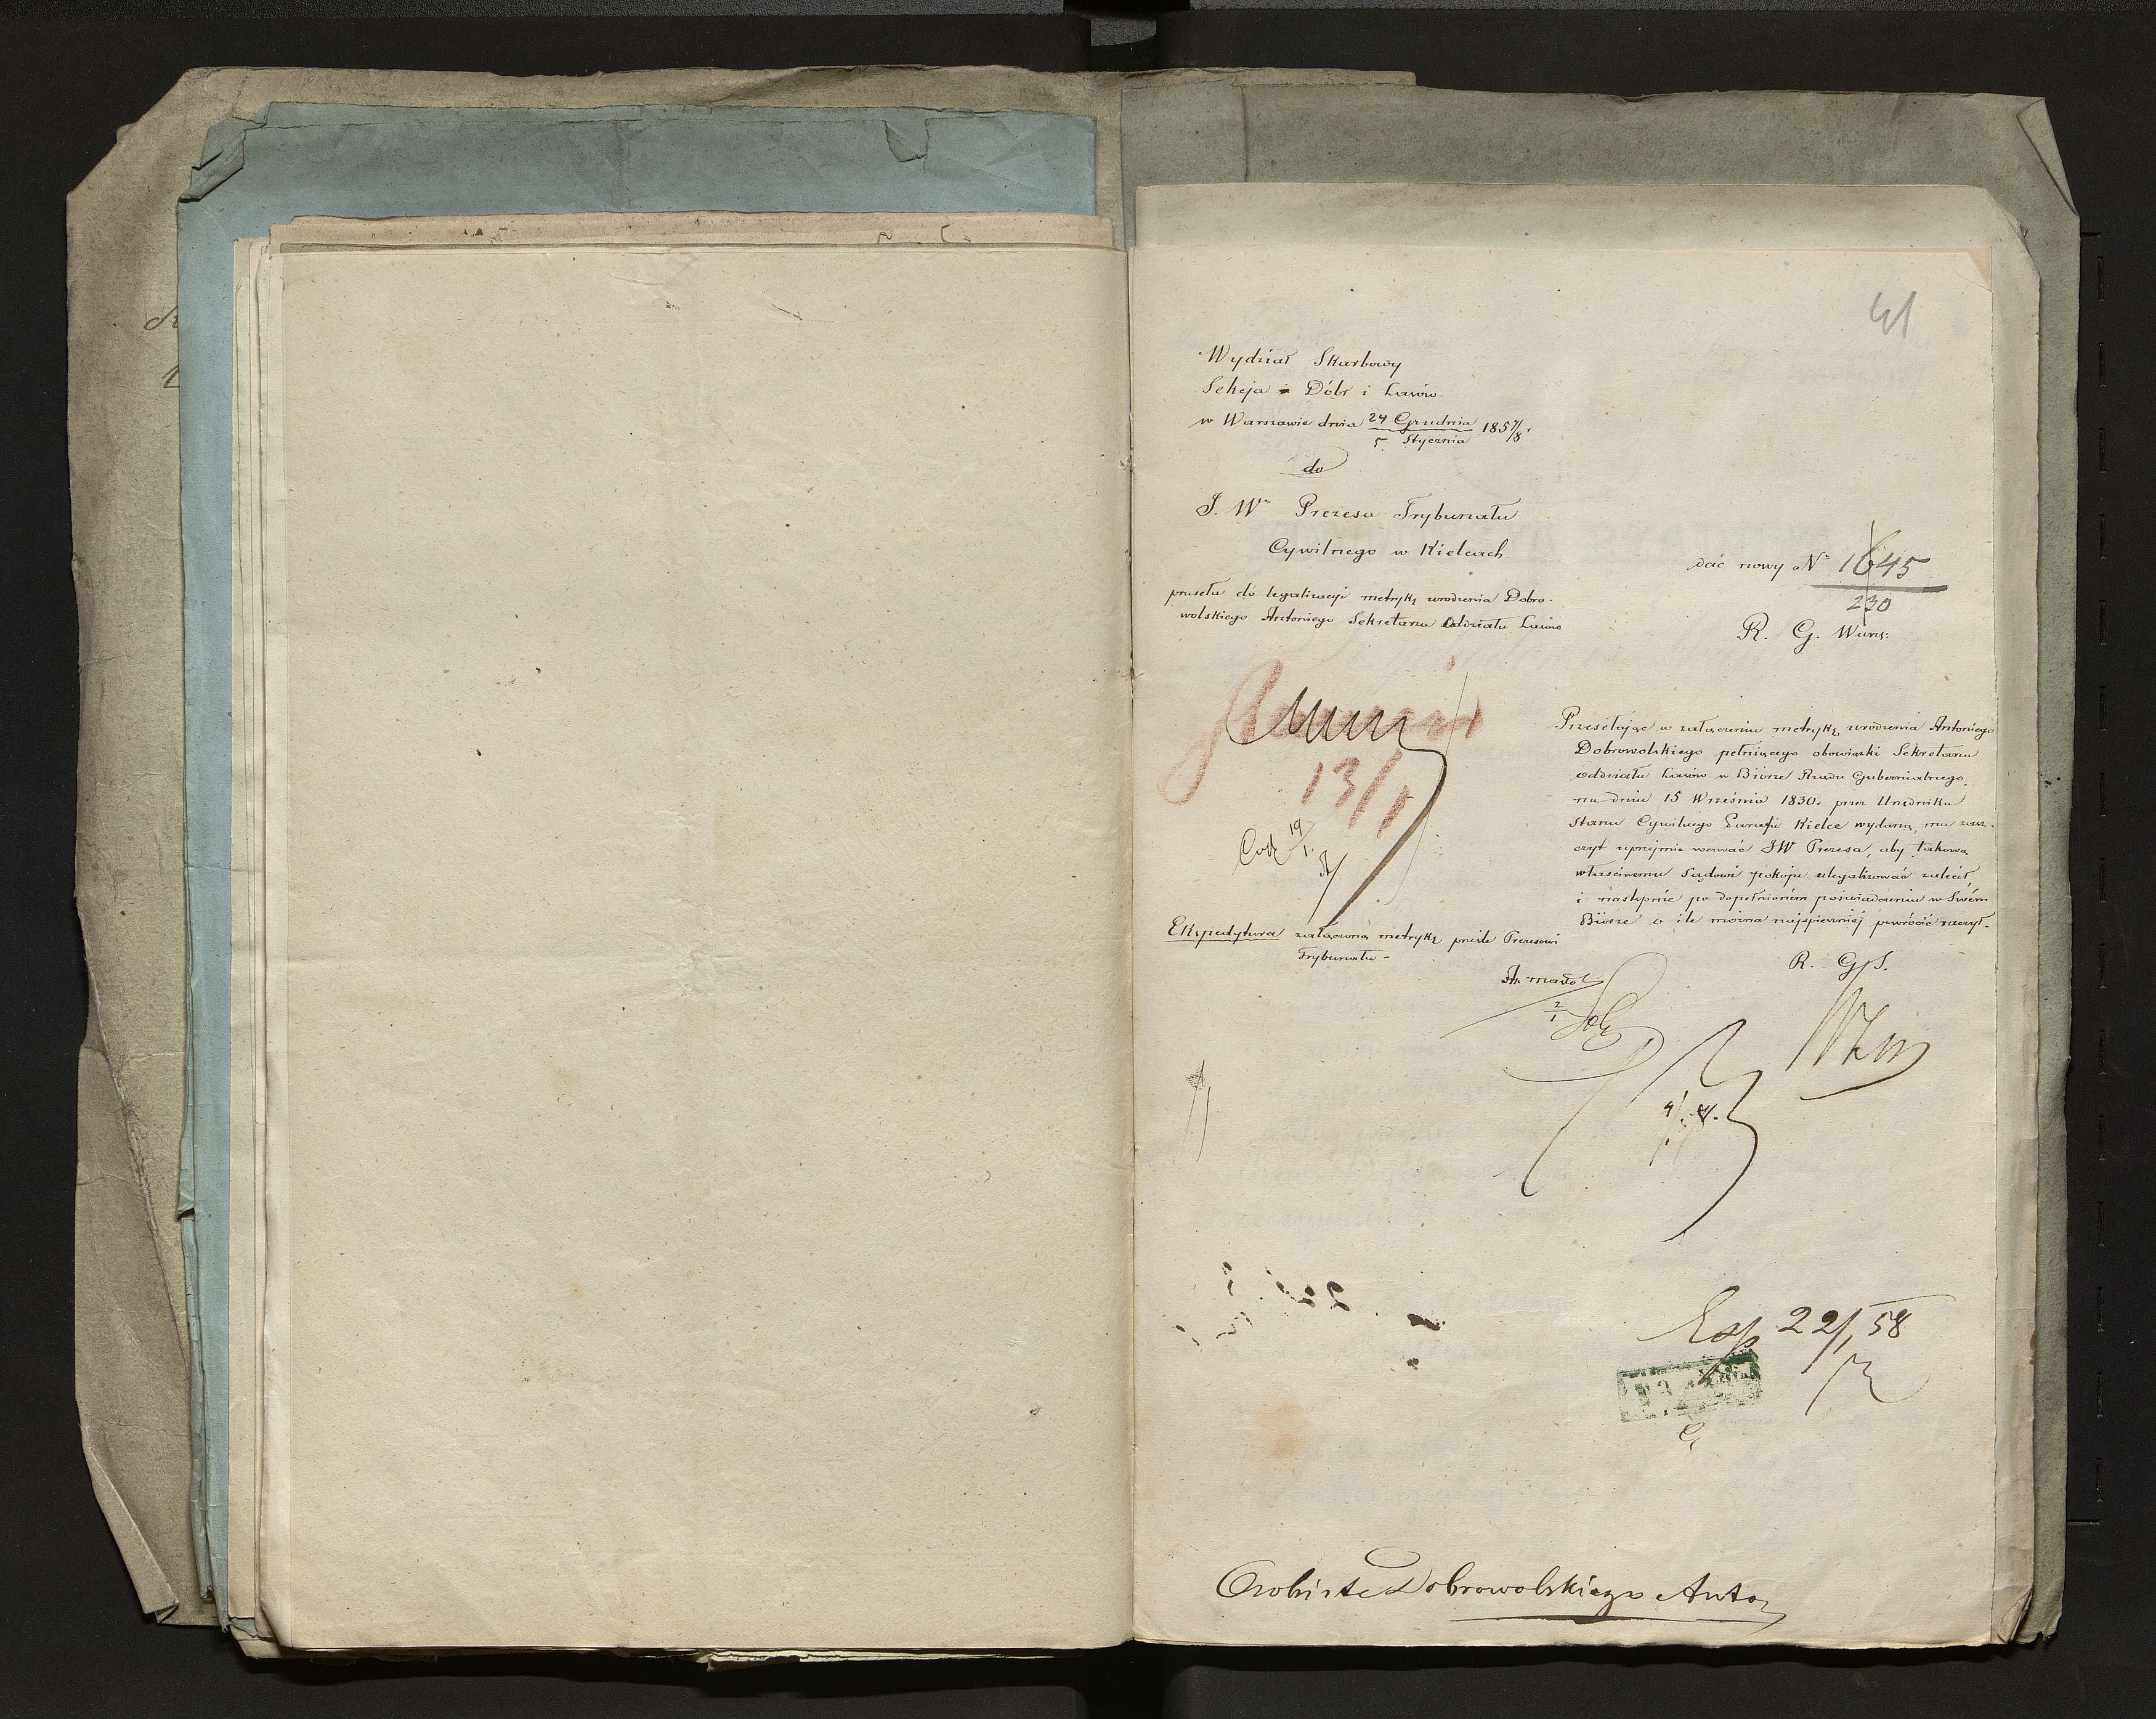 41
Wydział Skarbowy
Sekcja Dóbr i Lasów
w Warszawie dnia 24 Grudnia 1857/8 r
5 Stycznia
do
J. W° Prezesa Trybunału
Cywilnego w Kielcach.
dać nowy N° 1645
230
przesła do legalizacji metrykę urodzenia Dobro-
wolskiego Antoniego Sekretarza Oddziału Lasów
R. G. Warsz:
Przesełając w załączeniu metrykę urodzenia Antoniego
Dobrowolskiego pełniącego obowiązki Sekretarza
oddziału Lasów w Biórze Rządu Gubernialnego
na dniu 15 Września 1830 r przez Urzędnika
Stanu Cywilnego Parafii Kielce wydaną, ma zasz-
czyt uprzejmie wezwać JW Prezesa, aby takową
właściwemu Sądowi pokoju zlegalizować zalecił,
i następnie po dopełnionem poświadczeniu w Swém
Biórze o ile można najspieszniej powrócić raczył.-
13/1
19/1
Ekspedytura załączoną metrykę prześle Prezesowi
Trybunału -
R. G. S.
2/1
4/1
Exp 22/1 58
Osobiste Dobrowolskiego Anto